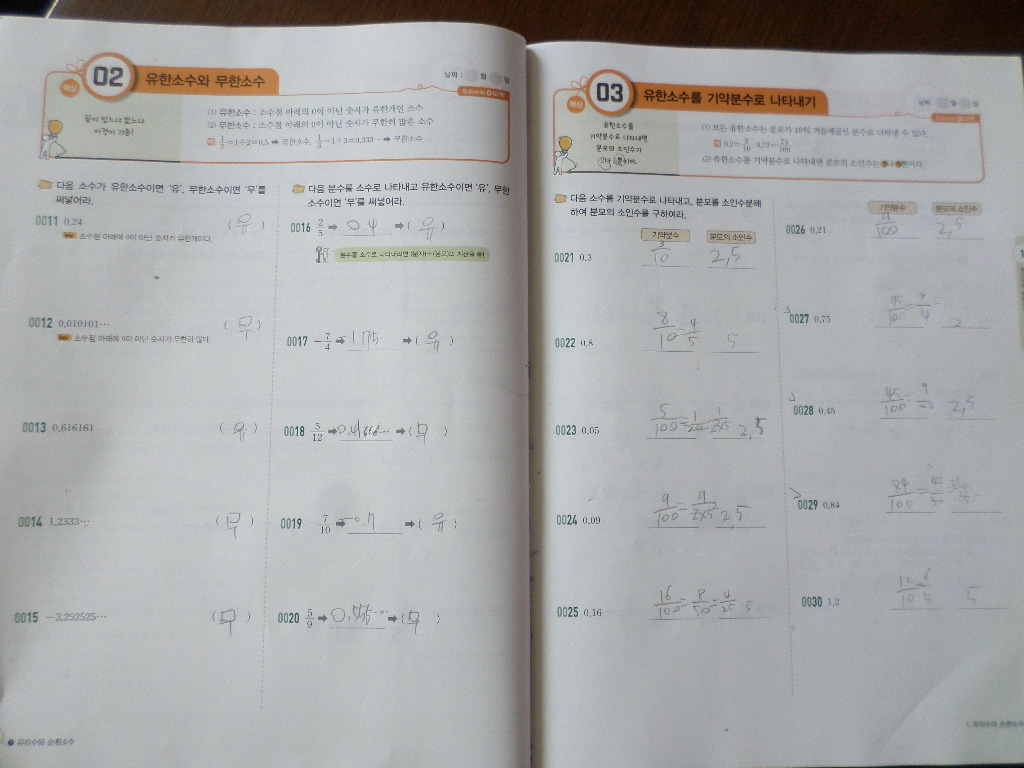 핵심 02 유한소수와 무한소수
날짜 : 월 일
끝이 있느냐 없느냐
이것이 기준!
(1) 유한소수 : 소수점 아래의 0이 아닌 숫자가 유한개인 소수
(2) 무한소수 : 소수점 아래의 0이 아닌 숫자가 무한히 많은 소수
1/2=1÷2=0.5 ➡ 유한소수, 1/3=1÷3=0.333··· ➡ 무한소수
다음 소수가 유한소수이면 '유', 무한소수이면 '무'를
써넣어라.
0011 0.24 ( 유 )
소수점 아래에 0이 아닌 숫자가 유한개이다.
0012 0.010101··· ( 무 )
소수점 아래에 0이 아닌 숫자가 무한히 많다.
0013 0.616161 ( 유 )
0014 1.2333··· ( 무 )
0015 -3.252525··· ( 무 )
다음 분수를 소수로 나타내고 유한소수이면 '유', 무한
소수이면 '무'를 써넣어라.
0016 2/5 ➡ 0.4 ➡ ( 유 )
분수를 소수로 나타내려면 (분자)÷(분모)의 계산을 해!
0017 -7/4 ➡ 1.75 ➡ ( 유 )
0018 5/12 ➡ 0.41666··· ➡ ( 무 )
0019 -7/10 ➡ -0.7 ➡ ( 유 )
0020 5/9 ➡ 0.555··· ➡ ( 무 )
유리수와 순환소수
핵심 03 유한소수를 기약분수로 나타내기
날짜 월 일
유한소수를
기약분수로 나타내면
분모의 소인수가
2나 5뿐이래.
(1) 모든 유한소수는 분모가 10의 거듭제곱인 분수로 나타낼 수 있다.
0.2=2/10, 0.73=73/100
(2) 유한소수를 기약분수로 나타내면 분모의 소인수는 2나 5뿐이다.
다음 소수를 기약분수로 나타내고, 분모를 소인수분해
하여 분모의 소인수를 구하여라.
기약분수 분모의 소인수
0021 0.3 3/10 2,5
0022 0.8 8/10 4/5 5
0023 0.05 5/100=1/20=1/2×5 2,5
0024 0.09 9/100=9/2×5 2,5
0025 0.16 16/100=8/50=4/25 5
기약분수 분모의 소인수
0026 0.21 21/100 2,5
0027 0.75 75/100 3/4 2
0028 0.45 45/100 9/20 2,5
0029 0.84 84/100=42/50 21/25
0030 1.2 12/10 6/5 5
1. 유리수와 순환소수